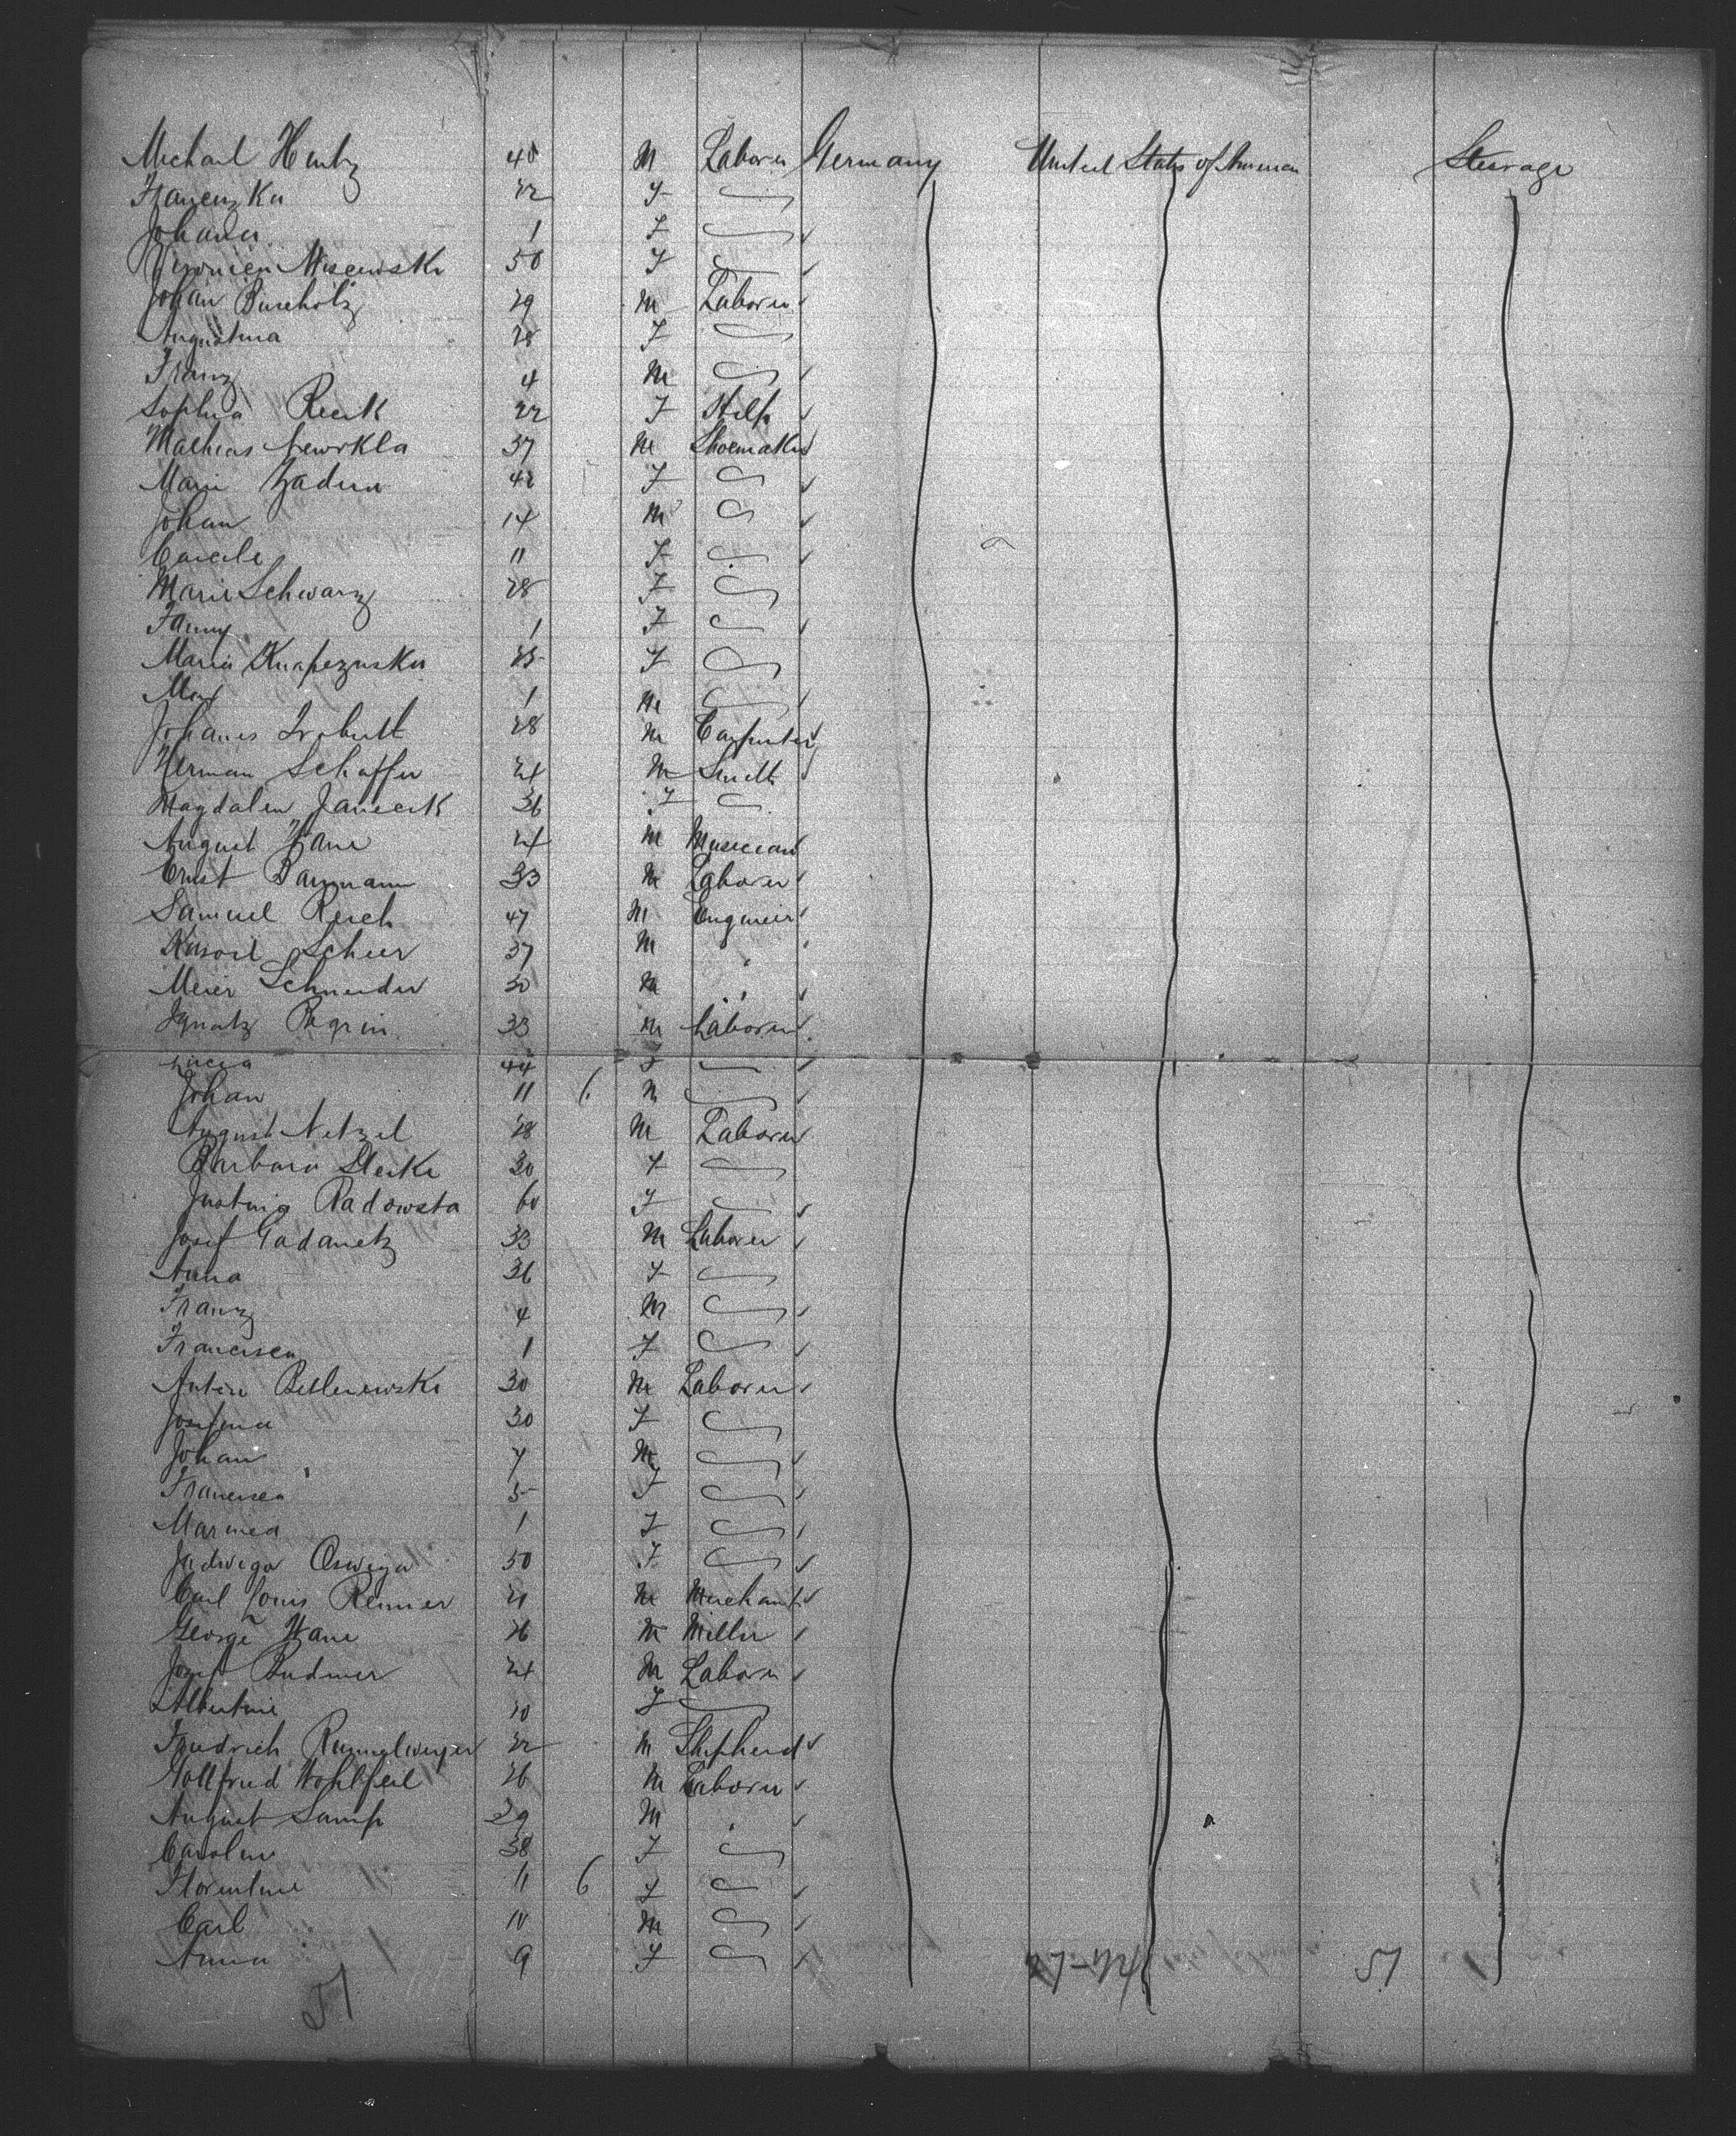 Michael Hentz 48 M Laborer Germany United States of America Steerage
Franzenzka 22 F
Johanes 1 F
50 F
Johan Bucholz 29 M Laborer
Augustina 28 F
Franz 4 M
Sophia Reuk 22 F
Mathias Newrkla 37 M Shoemaker
Marie Zadera 42 F
Johan 14 M
11 F
Marie Schwarz 28 F
Fanny 1 F
Maria 25 F
Max 1 M
Johanes 28 M Carpenter
Herman Schaffer 24 M Smith
Magdalen Janecek 36 F
August Hane 24 M Musician
Ernst Baumann 33 M Laborer
Samuel Reich 47 M Engineer
Scheer 37 M "
Meier Schneider 30 M "
Ignatz Pegrin 33 M Laborer
Lucia 44 F
Johan 11 6 M
August Netzel 28 M Laborer
Barbara Slecke 30 F
Justina Radowsta 60 F
Josef Gadanetz 33 M Laborer
Anna 36 F
Franz 4 M
Francisca 1 F
Anton 30 M Laborer
Josefina 30 F
Johan 7 M
Francisca 5 F
1 F
Jadwiga Oswega 50 F
Carl Louis Renner 21 M Merchant
George Hane 26 M Miller
Josef Budmer 24 M Laborer
Albertine 20 F
Friedrich 22 M Shepherd
Gottfried Wohlfeil 26 M Laborer
August Samp 29 M "
Caroline 38 F
Florentine 11 6 F
Carl 10 M
Anna 9 F
51 51